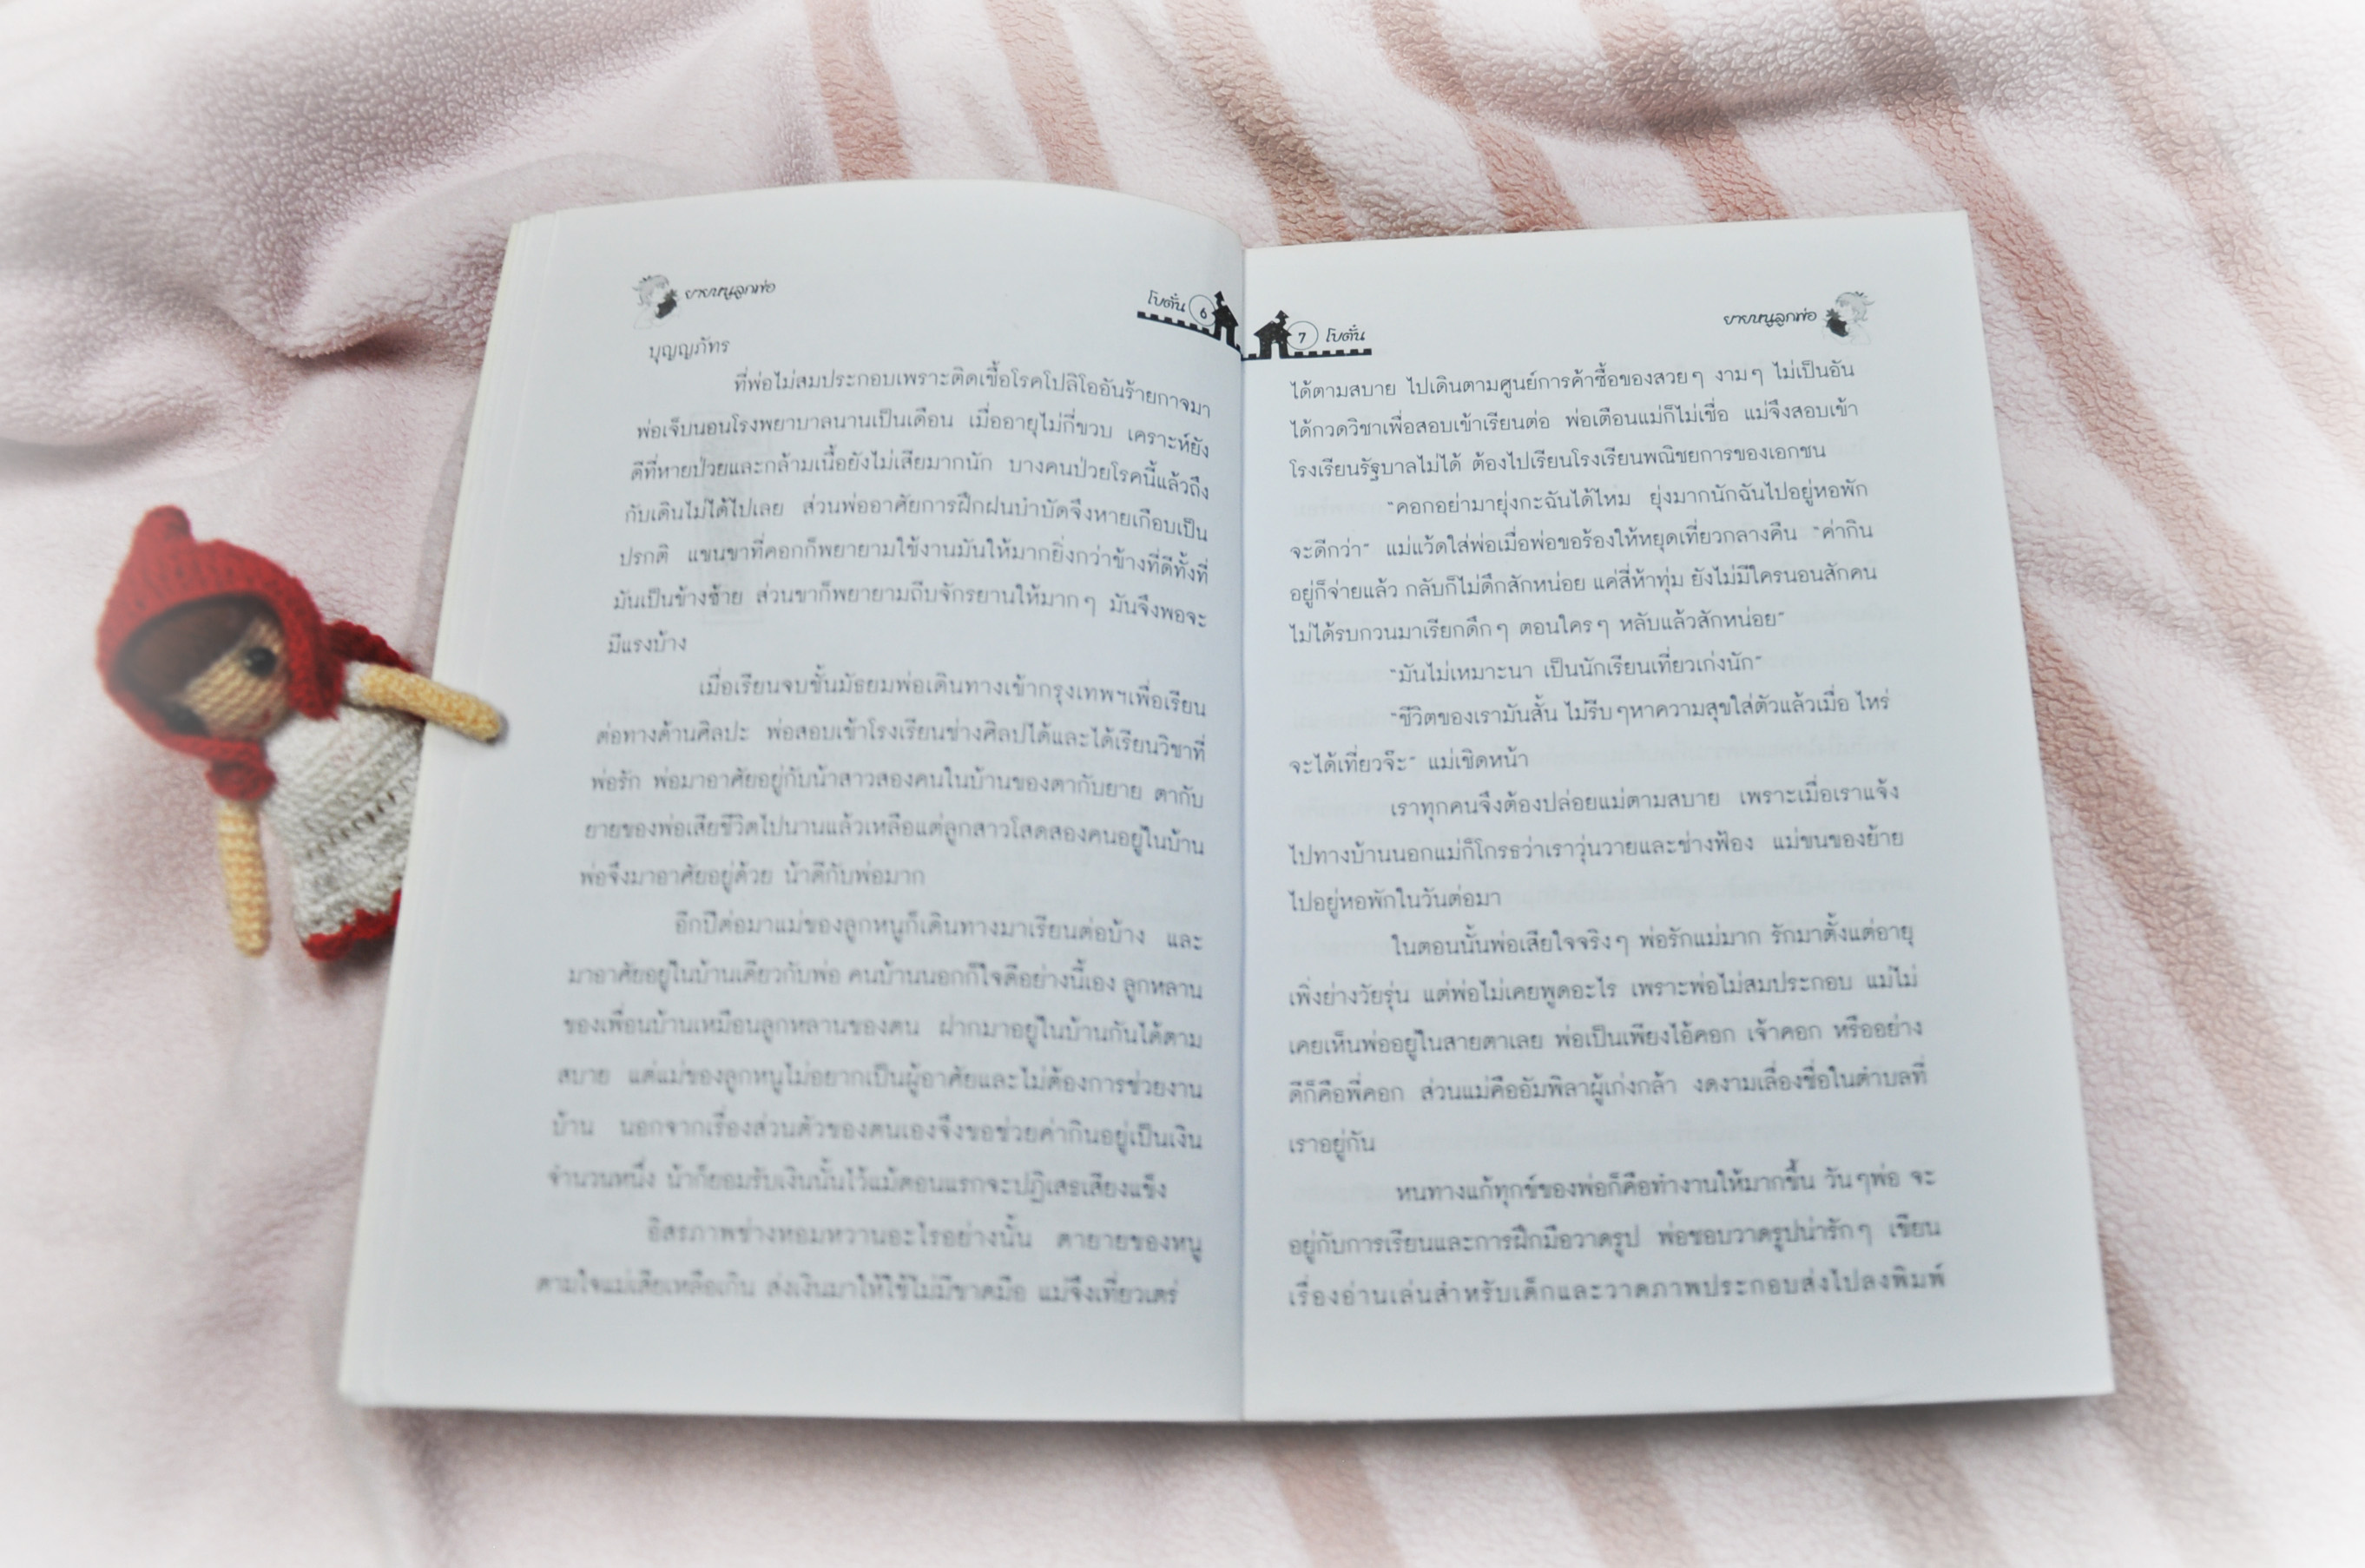 ยายหนูลูกพ่อ
โบตั๋น 6
บุญญภัทร
ที่พ่อไม่สมประกอบเพราะติดเชื้อโรคโปลิโออันร้ายกาจมา
พ่อเจ็บนอนโรงพยาบาลนานเป็นเดือน เมื่ออายุไม่กี่ขวบ เคราะห์ยัง
ดีที่หายป่วยและกล้ามเนื้อยังไม่เสียมากนัก บางคนป่วยโรคนี้แล้วถึง
กับเดินไม่ได้ไปเลย ส่วนพ่ออาศัยการฝึกฝนบำบัดจึงหายเกือบเป็น
ปรกติ แขนขาที่คอกก็พยายามใช้งานมันให้มากยิ่งกว่าข้างที่ดีทั้งที่
มันเป็นข้างซ้าย ส่วนขาก็พยายามถีบจักรยานให้มากๆ มันจึงพอจะ
มีแรงบ้าง
เมื่อเรียนจบชั้นมัธยมพ่อเดินทางเข้ากรุงเทพฯเพื่อเรียน
ต่อทางด้านศิลปะ พ่อสอบเข้าโรงเรียนช่างศิลปได้และได้เรียนวิชาที่
พ่อรัก พ่อมาอาศัยอยู่กับน้าสาวสองคนในบ้านของตากับยาย ตากับ
ยายของพ่อเสียชีวิตไปนานแล้วเหลือแต่ลูกสาวโสดสองคนอยู่ในบ้าน
พ่อจึงมาอาศัยอยู่ด้วย น้าดีกับพ่อมาก
อีกปีต่อมาแม่ของลูกหนูก็เดินทางมาเรียนต่อบ้าง และ
มาอาศัยอยู่ในบ้านเดียวกับพ่อ คนบ้านนอกก็ใจดีอย่างนี้เอง ลูกหลาน
ของเพื่อนบ้านเหมือนลูกหลานของตน ฝากมาอยู่ในบ้านกันได้ตาม
สบาย แต่แม่ของลูกหนูไม่อยากเป็นผู้อาศัยและไม่ต้องการช่วยงาน
บ้าน นอกจากเรื่องส่วนตัวของตนเองจึงขอช่วยค่ากินอยู่เป็นเงิน
จำนวนหนึ่ง น้าก็ยอมรับเงินนั้นไว้แม้ตอนแรกจะปฏิเสธเสียงแข็ง
อิสรภาพช่างหอมหวานอะไรอย่างนั้น ตายายของหนู
ตามใจแม่เสียเหลือเกิน ส่งเงินมาให้ใช้ไม่มีขาดมือ แม่จึงเที่ยวเตร่
7 โบตั๋น
ยายหนูลูกพ่อ
ได้ตามสบาย ไปเดินตามศูนย์การค้าซื้อของสวยๆ งามๆ ไม่เป็นอัน
ได้กวดวิชาเพื่อสอบเข้าเรียนต่อ พ่อเตือนแม่ก็ไม่เชื่อ แม่จึงสอบเข้า
โรงเรียนรัฐบาลไม่ได้ ต้องไปเรียนโรงเรียนพณิชยการของเอกชน
“คอกอย่ามายุ่งกะฉันได้ไหม ยุ่งมากนักฉันไปอยู่หอพัก
จะดีกว่า” แม่แว้ดใส่พ่อเมื่อพ่อขอร้องให้หยุดเที่ยวกลางคืน “ค่ากิน
อยู่ก็จ่ายแล้ว กลับก็ไม่ดึกสักหน่อย แค่สี่ห้าทุ่ม ยังไม่มีใครนอนสักคน
ไม่ได้รบกวนมาเรียกดึกๆ ตอนใครๆ หลับแล้วสักหน่อย”
“มันไม่เหมาะนา เป็นนักเรียนเที่ยวเก่งนัก”
“ชีวิตของเรามันสั้น ไม่รีบๆหาความสุขใส่ตัวแล้วเมื่อ ไหร่
จะได้เที่ยวจ๊ะ” แม่เชิดหน้า
เราทุกคนจึงต้องปล่อยแม่ตามสบาย เพราะเมื่อเราแจ้ง
ไปทางบ้านนอกแม่ก็โกรธว่าเราวุ่นวายและช่างฟ้อง แม่ขนของย้าย
ไปอยู่หอพักในวันต่อมา
ในตอนนั้นพ่อเสียใจจริงๆ พ่อรักแม่มาก รักมาตั้งแต่อายุ
เพิ่งย่างวัยรุ่น แต่พ่อไม่เคยพูดอะไร เพราะพ่อไม่สมประกอบ แม่ไม่
เคยเห็นพ่ออยู่ในสายตาเลย พ่อเป็นเพียงไอ้คอก เจ้าคอก หรืออย่าง
ดีก็คือพี่คอก ส่วนแม่คืออัมพิลาผู้เก่งกล้า งดงามเลื่องชื่อในตำบลที่
เราอยู่กัน
หนทางแก้ทุกข์ของพ่อก็คือทำงานให้มากขึ้น วันๆพ่อ จะ
อยู่กับการเรียนและการฝึกมือวาดรูป พ่อชอบวาดรูปน่ารักๆ เขียน
เรื่องอ่านเล่นสำหรับเด็กและวาดภาพประกอบส่งไปลงพิมพ์